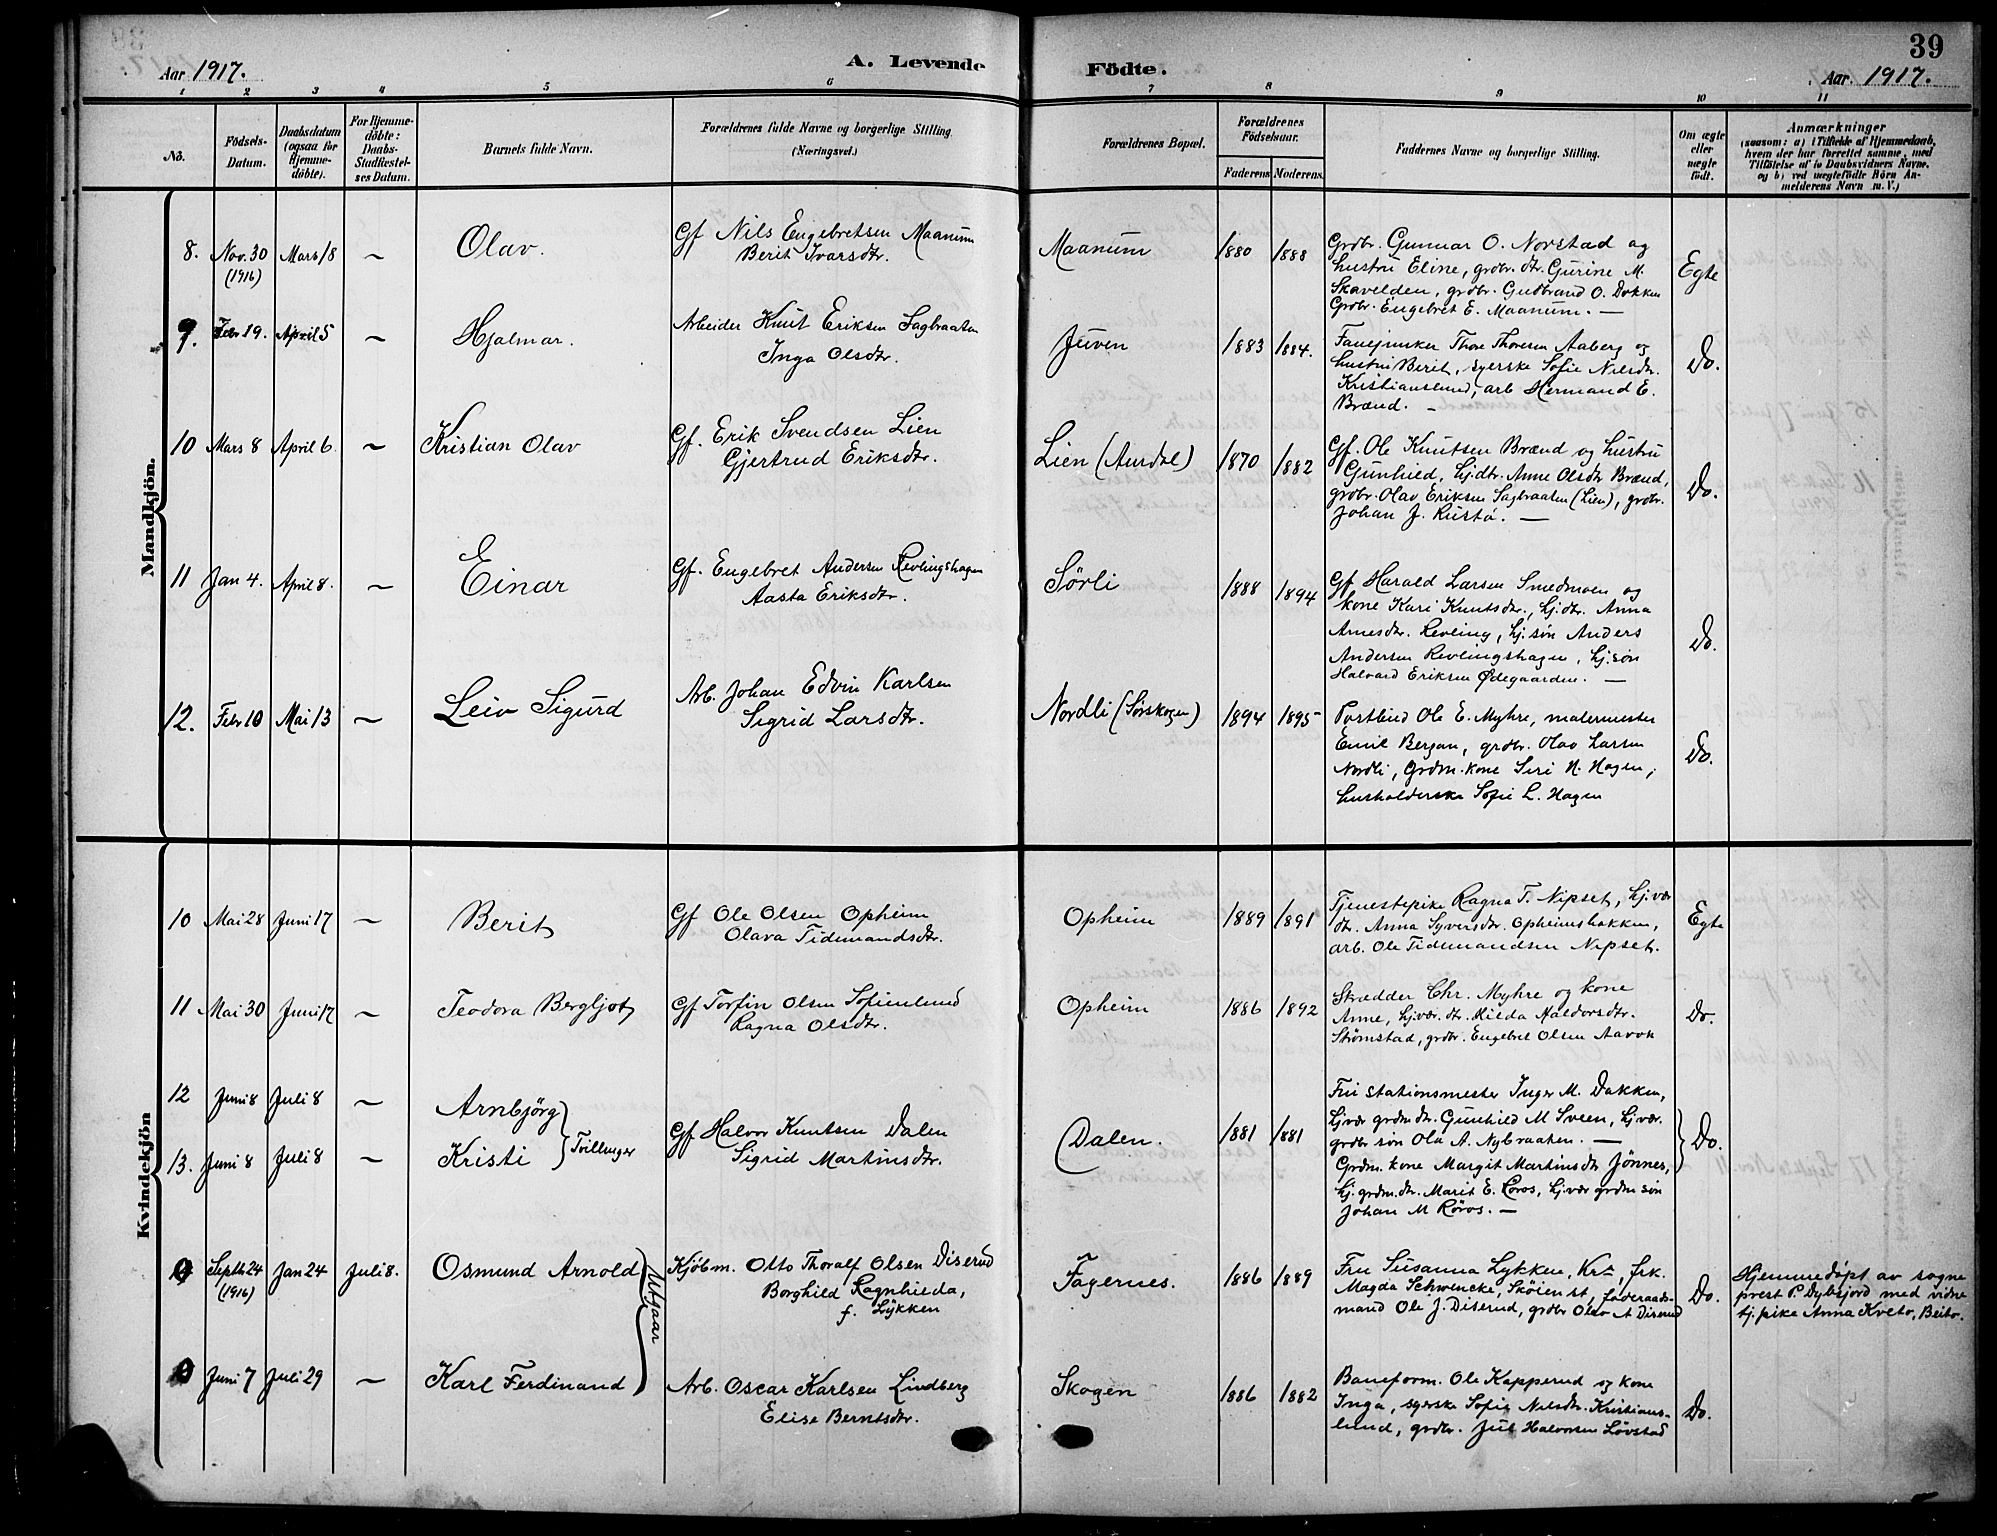 39
Aar 1917.
A. Levende
Födte.
Aar. 1917.
1 2 3 4 5 6 7 8 9 10 11
No.
Födsels-
Datum.
Daabsdatum
(ogsaa for
Hjemme-
döbte).
For Hjemme-
döbte:
Daabs-
Stadfæstel-
ses Datum.
Barnets fulde Navn.
Forældrenes fulde Navne og borgerlige Stilling
(Næringsvei.)
Forældrenes Bopæl.
Forældrenes
Födselsaar.
Faderens Moderens.
Faddernes Navne og borgerlige Stilling.
Om ægte
eller
uægte
födt.
Anmærkninger
(saasom: a) i Tilfælde af Hjemmedaab,
hvem der har forrettet samme, med
Tilföielse af to Daabsvidners Navne.
og b) ved uægtefödte Börn An-
melderens Navn m. V.)
Mandkjön.
8. Nov. 30 Mars 18 — Olav.
(1916)
Gf Nils Engebretsen Maanum
Berit Ivarsdtr.
Maanum 1880 1888
Grdbr. Gunnar O. Norstad og
hustru Eline, grdbr. dtr. Gurine M.
Skavelden, grdbr. Gudbrand O. Dokken
Grdbr. Engebret E. Maanum. —
Egte
9. Febr 19. April 5 — Hjalmar.
Arbeider Knut Eriksen Sagbraaten
Inga Olsdtr.
Juven 1883 1884.
Fanejunker Thore Thoresen Aaberg og
hustru Berit, syerske Sofie Nilsdtr.
Kristianslund, arb Hermand E.
Brænd. —
Do.
10 Mars 8 April 6 — Kristian Olav
Gf. Erik Svendsen Lien
Gjertrud Eriksdtr.
Lien (Aurdal) 1870 1882
Gf. Ole Knutsen Brænd og hustru
Gunhild, hj.dtr. Anne Olsdtr Brænd,
grdbr. Olav Eriksen Sagbraaten (Lien), grdbr.
Johan J. Rustø. —
Do.
11 Jan 4. April 8. — Einar
Gf. Engebret Andersen Revlingshagen
Aasta Eriksdtr.
Sørli 1888 1894
Gf Harald Larsen Smedmoen og
kone Kari Knutsdtr., hj.dtr. Anna
Arnesdtr. Revling, hj.søn Anders
Andersen Revlingshagen, hj.søn
Halvard Eriksen Ødegaarden. —
Do.
12. Febr 10 Mai 13 — Leiv Sigurd
Arb. Johan Edvin Karlsen
Sigrid Larsdtr.
Nordli (Sørskogen) 1894 1895
Postbud Ole E. Myhre, malermester
Emil Bergan, grdbr. Olav Larsen
Nordli, Grdm. kone Siri N. Hagen,
husholderske Sofie L. Hagen
Do.
Kvindekjön
10 Mai 28 Juni 17 — Berit
Gf Ole Olsen Opheim
Olava Tidemandsdtr.
Opheim 1889 1891
Tjenestepike Ragna T. Nipset, hj.vær
dtr. Anna Syversdtr. Opheimsbakken,
arb. Ole Tidemandsen Nipset.
Egte
11 Mai 30 Juni 17 — Teodora Bergljot
Gf Torfin Olsen Sofienlund
Ragna Olsdtr.
Opheim 1886 1892
Skrædder Chr. Myhre og kone
Anne, hj.vær. dtr. Hilda Haldorsdtr.
Strømstad, grdbr. Engebret Olsen Aavok
Do.
12 Juni 8 Juli 8 — Arnbjörg
13. Juni 8 Juli 8 — Kristi
Tvillinger
Gf Halvor Knutsen Dalen
Sigrid Martinsdtr.
Dalen. 1881 1881
Fru stationsmester Inger M. Dokken,
hj.vær grdm.dtr. Gunhild M Sveen, hj.vær.
grdbr søn Ola A. Nybraaten. —
Grdm. kone Margit Martinsdtr Jönnes,
hj. grdm.dtr. Marit E. Röros, hj.vær grdm søn
Johan M Röros. —
Do.
Septbr 24 Jan 24 Juli 8. Osmund Arnold
(1916)
Mutgaar
Kjöbm. Otto Thoralf Olsen Diserud
Borghild Ragnhilda,
f. Lykken
Fagernes. 1886 1889
Fru Susanna Lykken, Kra, frk.
Magda Schwencke, Sköien st,
mand Ole J. Diserud, grdbr Olav A Diserud
Do.
Hjemmedøpt av sogne
prest P. Dybsjord med vidne
tj.pike Anna Kveto, Beito.
Juni 7 Juli 29 — Karl Ferdinand
Arb. Oscar Karlsen Lindberg
Elise Berntsdtr.
Skogen 1886 1882
Baneform. Ole Kapperud og kone
Inga, syerske Sofie Nilsdtr. Kristians-
lund, grdbr. Jul Halvorsen Løvstad
Do.